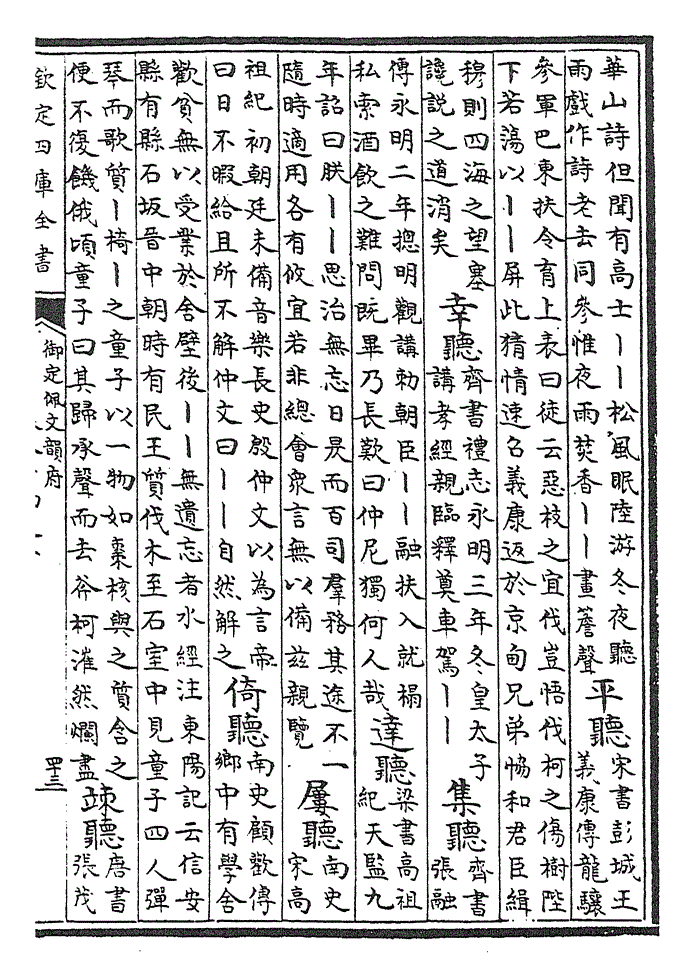 華山詩但聞有高士丨丨松風眠陸游冬夜聽
雨戲作詩老去同參惟夜雨焚香丨丨畫簷聲
平聽
宋書彭城王
義康傳龍驤
參軍巴東扶令育上表曰徒云惡枝之宜伐豈悟伐柯之傷樹陛
下若蕩以丨丨屏此猜情速召義康返於京甸兄弟恊和君臣緝
穆則四海之望塞
讒説之道消矣
幸聽
齊書禮志永明三年冬皇太子
講孝經親臨釋奠車駕丨丨
集聽
齊書
張融
傳永明二年摠明觀講勅朝臣丨丨融扶入就榻
私索酒飲之難問既畢乃長歎曰仲尼獨何人哉
達聽
梁書高祖
紀天監九
年詔曰朕丨丨思治無忘日昃而百司羣務其途不一
隨時適用各有攸宜若非總會衆言無以備兹親覽
屢聽
南史
宋高
祖紀 初朝廷未備音樂長史殷仲文以為言帝
曰日不暇給且所不解仲文曰丨丨自然解之
倚聽
南史顧歡傳
鄉中有學舍
歡貧無以受業於舍壁後丨丨無遺忘者水經注東陽記云信安
縣有縣石坂晉中朝時有民王質伐木至石室中見童子四人彈
琴而歌質丨椅丨之童子以一物如棗核與之質含之
便不復饑俄頃童子曰其歸承聲而去斧柯漼然爛盡
竦聽
唐書
張茂
欽定四庫全書
御定佩文韻府
四十三